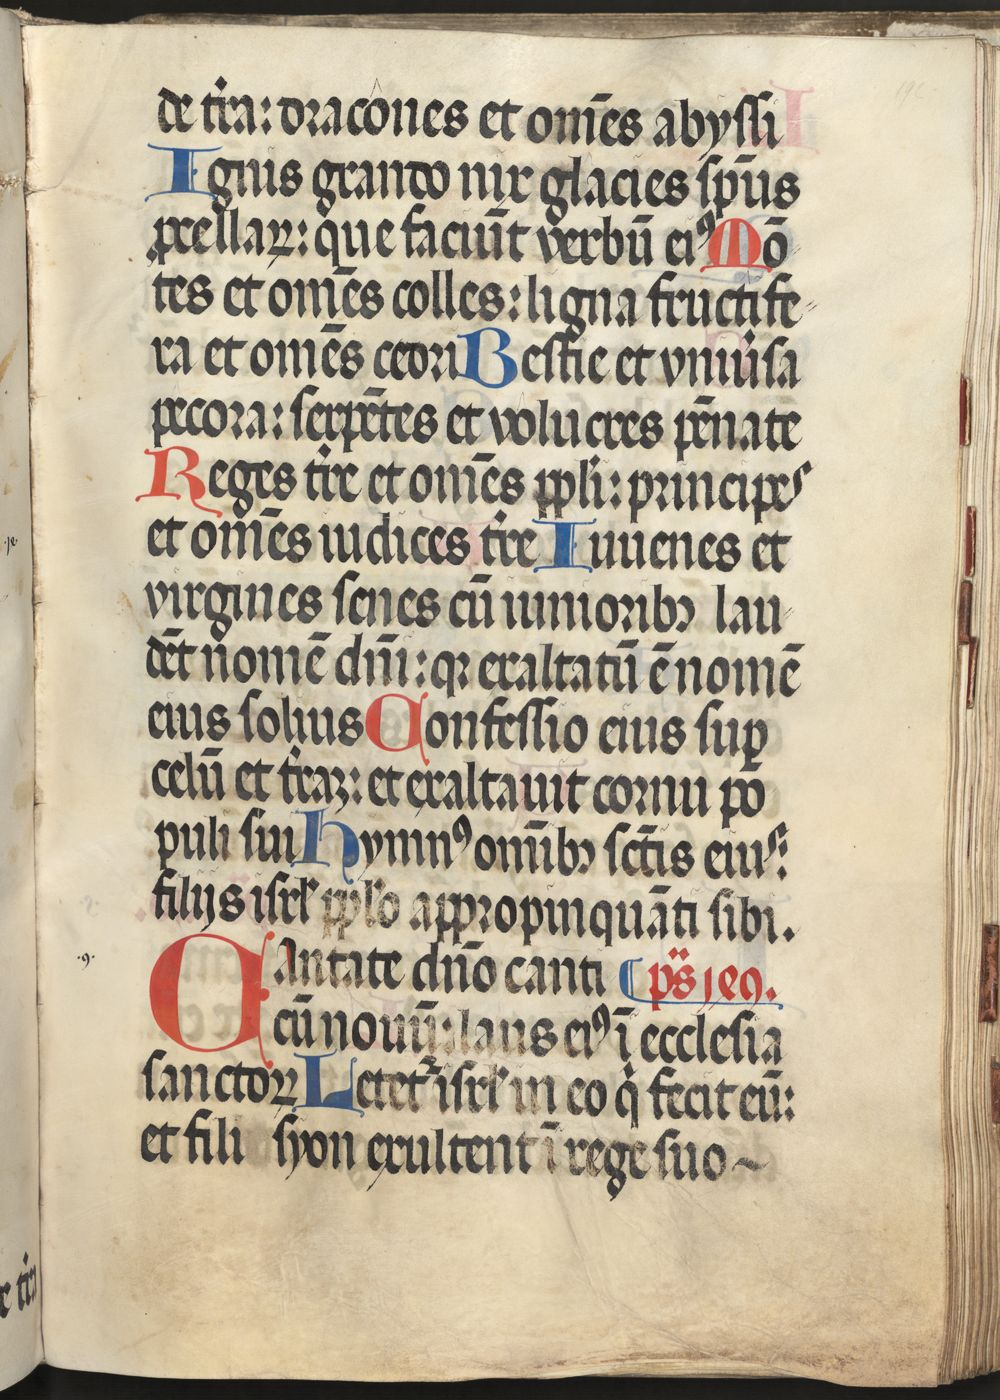 de tr̃a: dracones et om̃es abyssi
Ignis grando nix glacies sp̃us
ꝓcellaꝝ: que faciũt verbũ eiꝰ Mõ
tes et om̃es colles: ligna fructife
ra et om̃es cedri Bestie et vniũsa
pecora: serpẽtes et volucres pẽnate
Reges tr̃e et om̃es ppl̃i: principes
et om̃es iudices tr̃e Iuuenes et
virgines senes cũ iunioribꝫ lau
dẽt nomẽ dñi: qꝛ exaltatũ ẽ nomẽ
eius solius Confessio eius suꝑ
celũ et tr̃aꝫ: et exaltauit cornu po
puli sui Hymnꝰ om̃ibꝫ sc̃tis eius:
filijs isrł pplo appropinquãti sibi.
Cantate dño canti ps̃ jeꝯ.
cũ nouũ: laus eiꝰ ĩ ecclesia
sanctoꝝ Letet᷑ isrł in eo q̇ fecit eũ:
et fili syon exultent ĩ rege suo ~